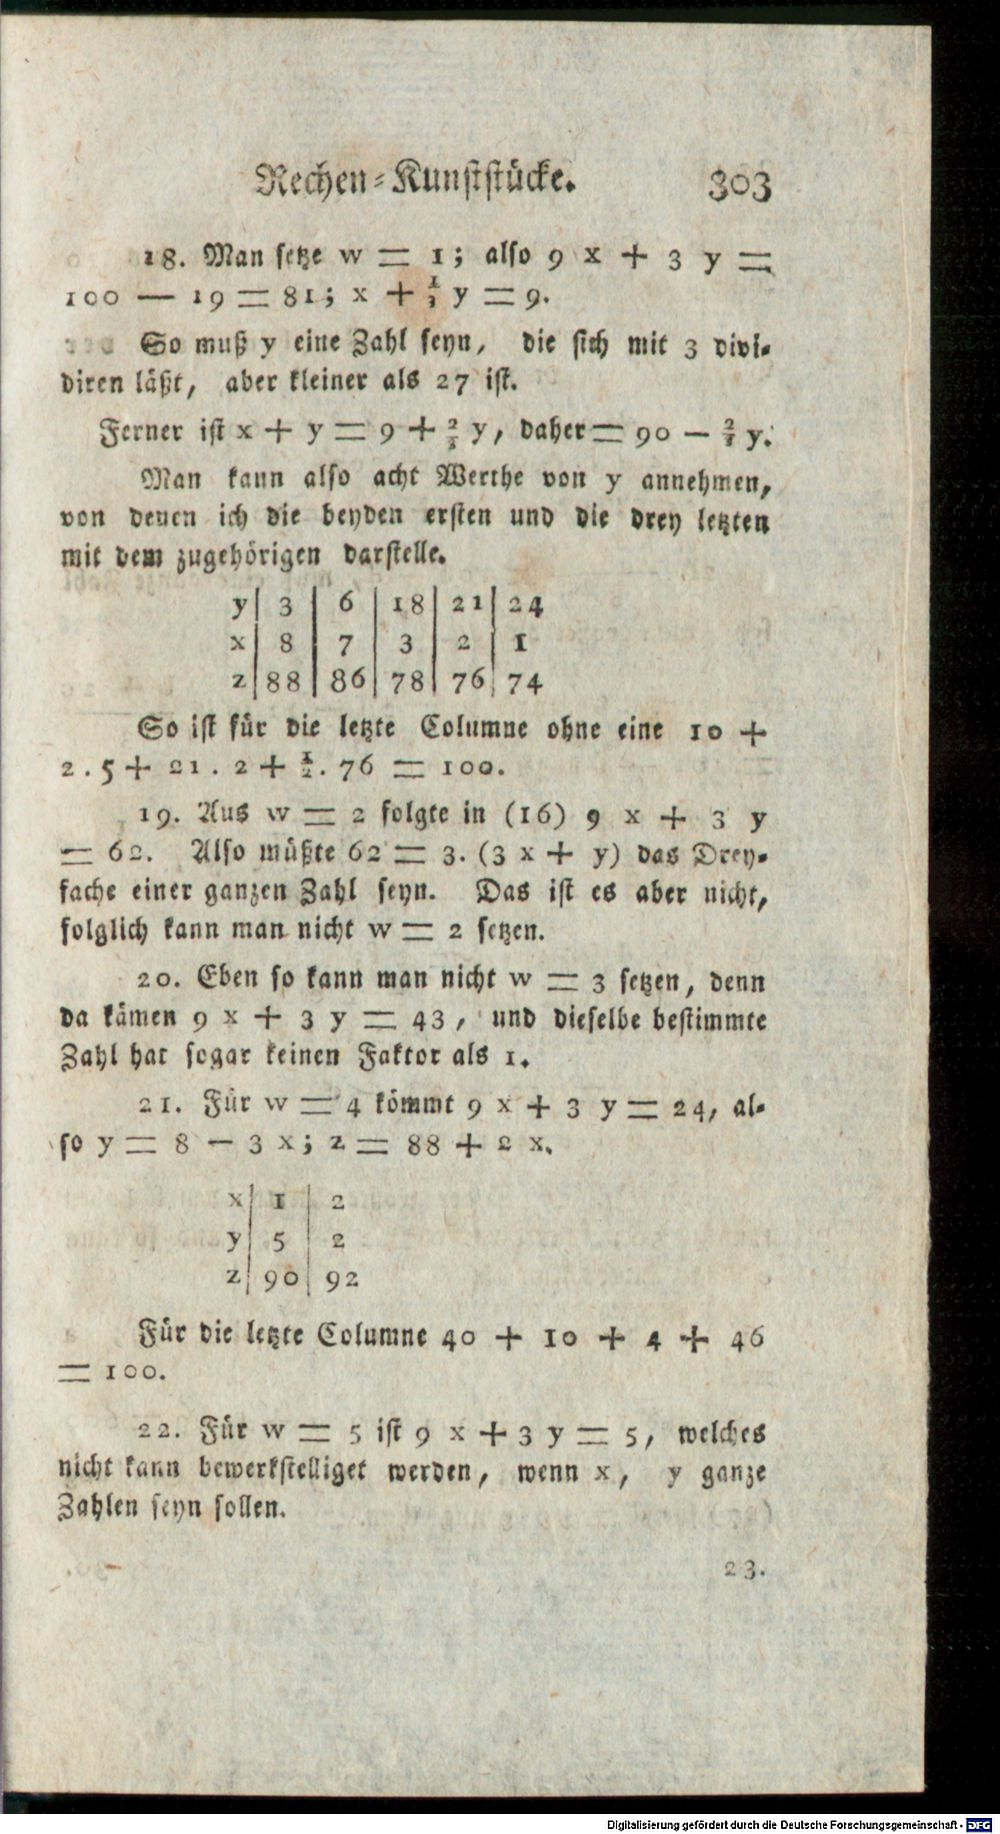 Rechen-Kunststücke. 303
18. Man setze w = 1; also 9 x + 3 y =
100 — 19 = 81; x + 1/3 y = 9.
So muß y eine Zahl seyn, die sich mit 3 divi-
diren läßt, aber kleiner als 27 ist.
Ferner ist x + y = 9 + 2/3 y, daher = 90 — 2/3 y.
Man kann also acht Werthe von y annehmen,
von denen ich die beyden ersten und die drey letzten
mit dem zugehörigen darstelle.
y | 3 | 6 | 18 | 21 | 24
x | 8 | 7 | 3 | 2 | 1
z | 88 | 86 | 78 | 76 | 74
So ist für die letzte Columne ohne eine 10 +
2 . 5 + 21 . 2 + 1/2 . 76 = 100.
19. Aus w = 2 folgte in (16) 9 x + 3 y
= 62. Also müßte 62 = 3. (3 x + y) das Drey-
fache einer ganzen Zahl seyn. Das ist es aber nicht,
folglich kann man nicht w = 2 setzen.
20. Eben so kann man nicht w = 3 setzen, denn
da kämen 9 x + 3 y = 43, und dieselbe bestimmte
Zahl hat sogar keinen Faktor als 1.
21. Für w = 4 kömmt 9 x + 3 y = 24, al-
so y = 8 — 3 x; z = 88 + 2 x.
x | 1 | 2
y | 5 | 2
z | 90 | 92
Für die letzte Columne 40 + 10 + 4 + 46
= 100.
22. Für w = 5 ist 9 x + 3 y = 5, welches
nicht kann bewerkstelliget werden, wenn x, y ganze
Zahlen seyn sollen.
23.
Digitalisierung gefördert durch die Deutsche Forschungsgemeinschaft - DFG